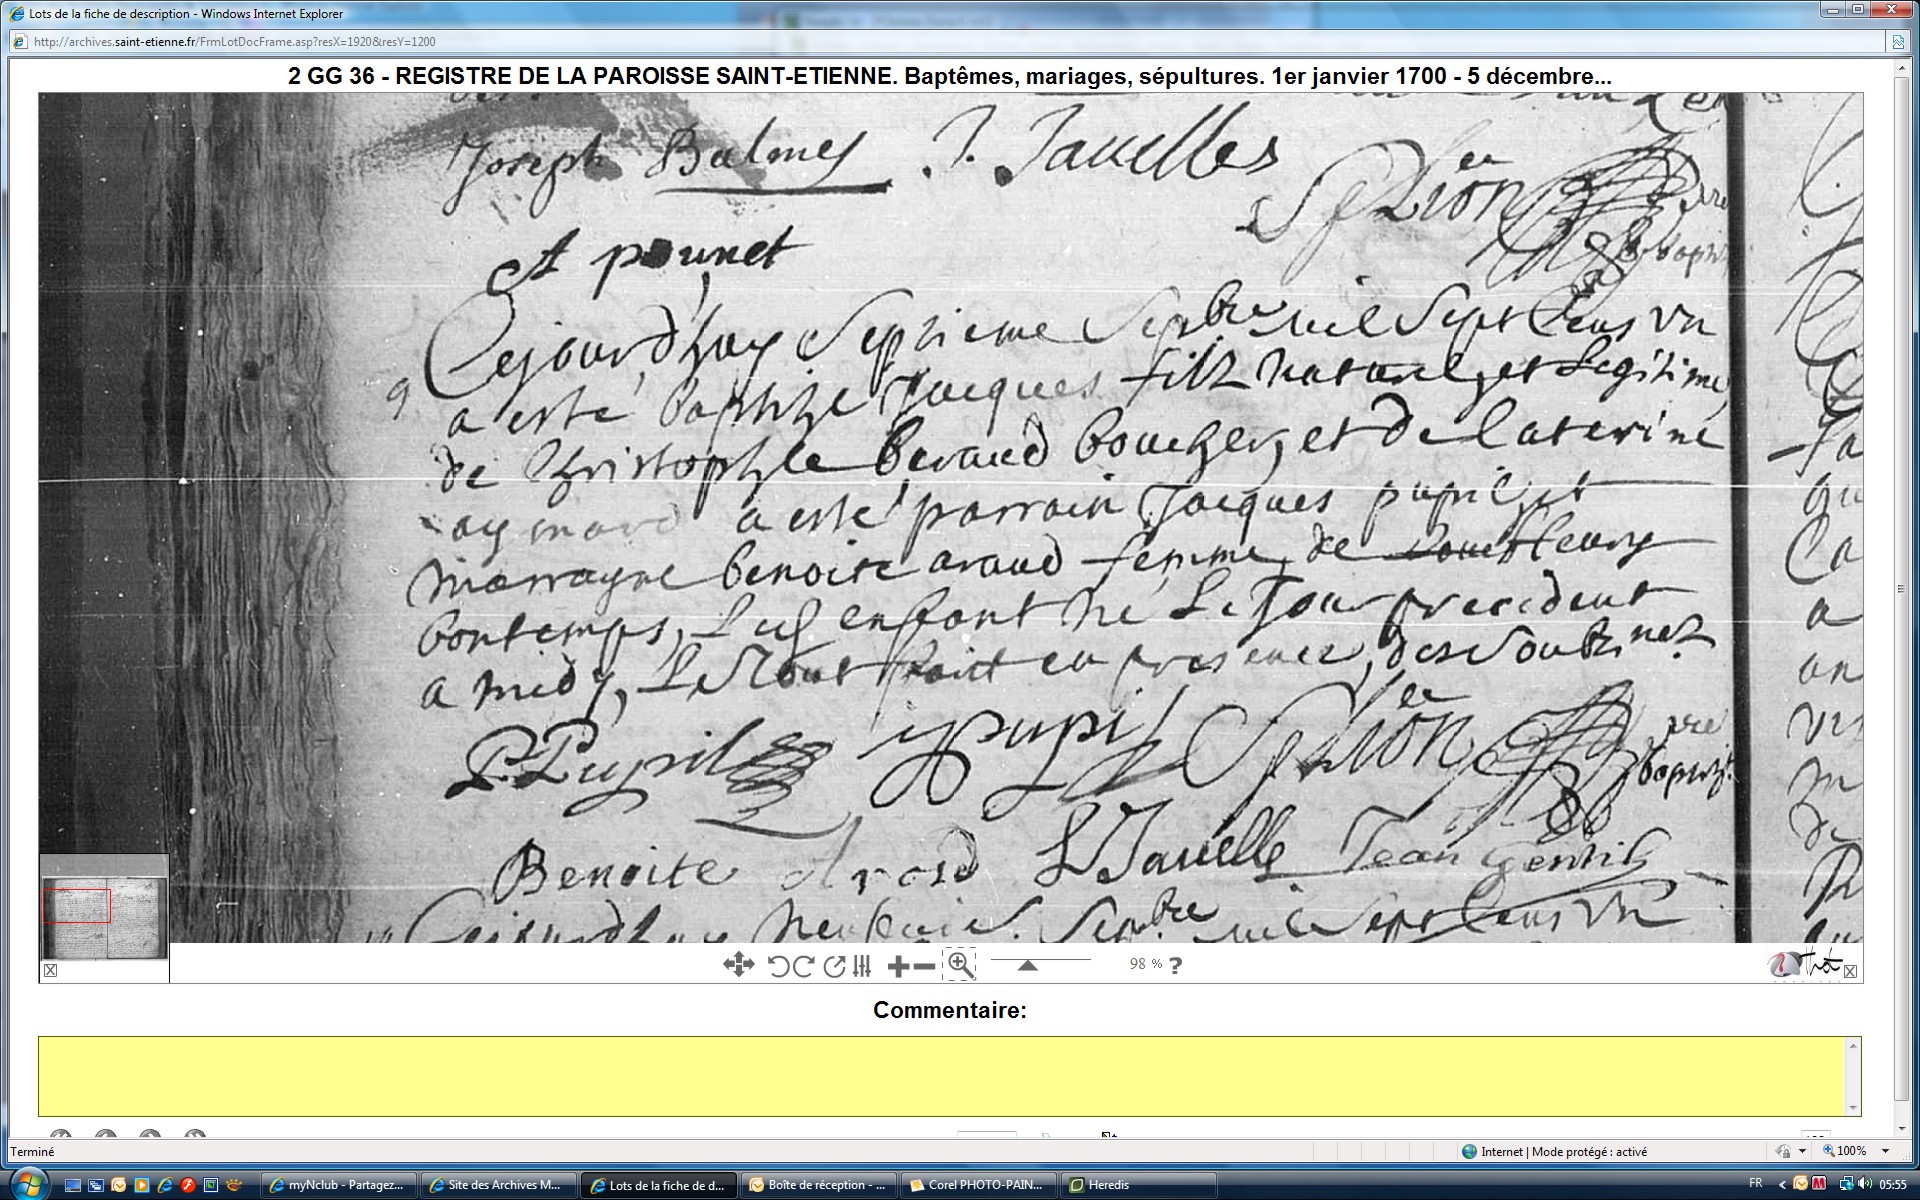 Lots de la fiche de description - Windows Internet Explorer
http://archives.saint-etienne.fr/FrmLotDocFrame.asp?resX=1920&resY=1200
2 GG 36 - REGISTRE DE LA PAROISSE SAINT-ETIENNE. Baptêmes, mariages, sépultures. 1er janvier 1700 - 5 décembre...
Joseph Balmey J. Jauelles
A pounet
Cejourdhuy septieme Sepbre mil sept Cens vn
9
a esté baptizé Jacques filz naturel et Legitime
de Christophle beraud boucher, et de Caterine
aymard a esté parrain Jacques pupil, et
marrayne benoite araud femme de fleury
bontemps, Led enfant né Le Jour precedent
a midy, Le tout faict en presence des Soubz.nez
P. Pupil J pupil
Benoite Arod L Jauelle Jean Gentil
Cejourdhuy neufuie. Sepbre mil sept Cens vn
98 % ?
Thot
Commentaire:
Terminé
Internet | Mode protégé : activé
100%
myNclub - Partagez...
Site des Archives M...
Lots de la fiche de d...
Boîte de réception - ...
Corel PHOTO-PAIN...
Heredis
FR
05:55